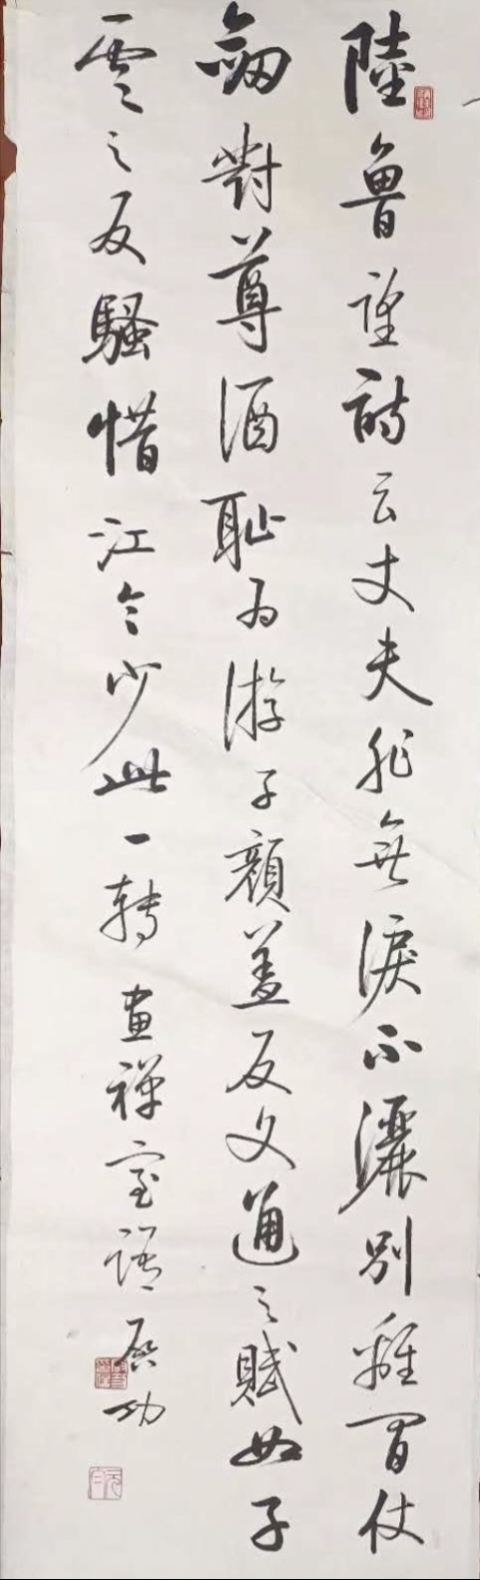 陸魯望詩云丈夫非無淚不灑別離間仗
劒對尊酒恥為游子顏蓋反文通之賦如子
雲之反騷惜江令少此一轉畫禪室語启功